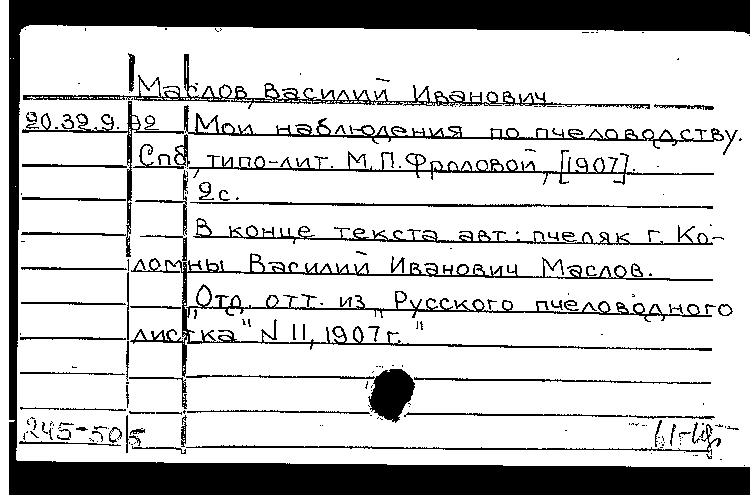 Маслов, Василий Иванович
20.32.9.92 Мои наблюдения по пчеловодству.
Спб, типо-лит. М.П.Фроловой, [1907].
2с.
В конце текста авт.: пчеляк г. Ко-
ломны Василий Иванович Маслов.
"Отд. отт. из "Русского пчеловодного
листка" N 11, 1907г."
245-505